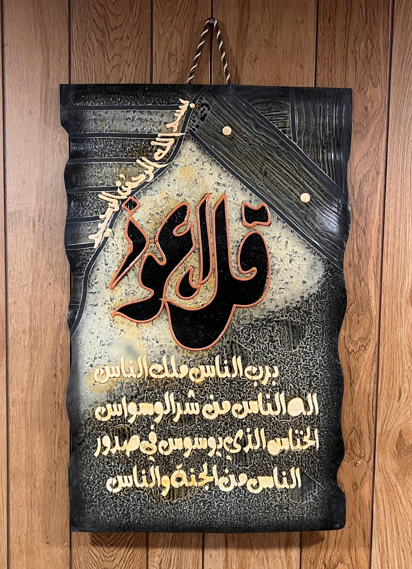 بسم الله الرحمن الرحيم
قل اعوذ
برب الناس ملك الناس
اله الناس من شر الوسواس
الخناس الذى يوسوس فى صدور
الناس من الجنة والناس